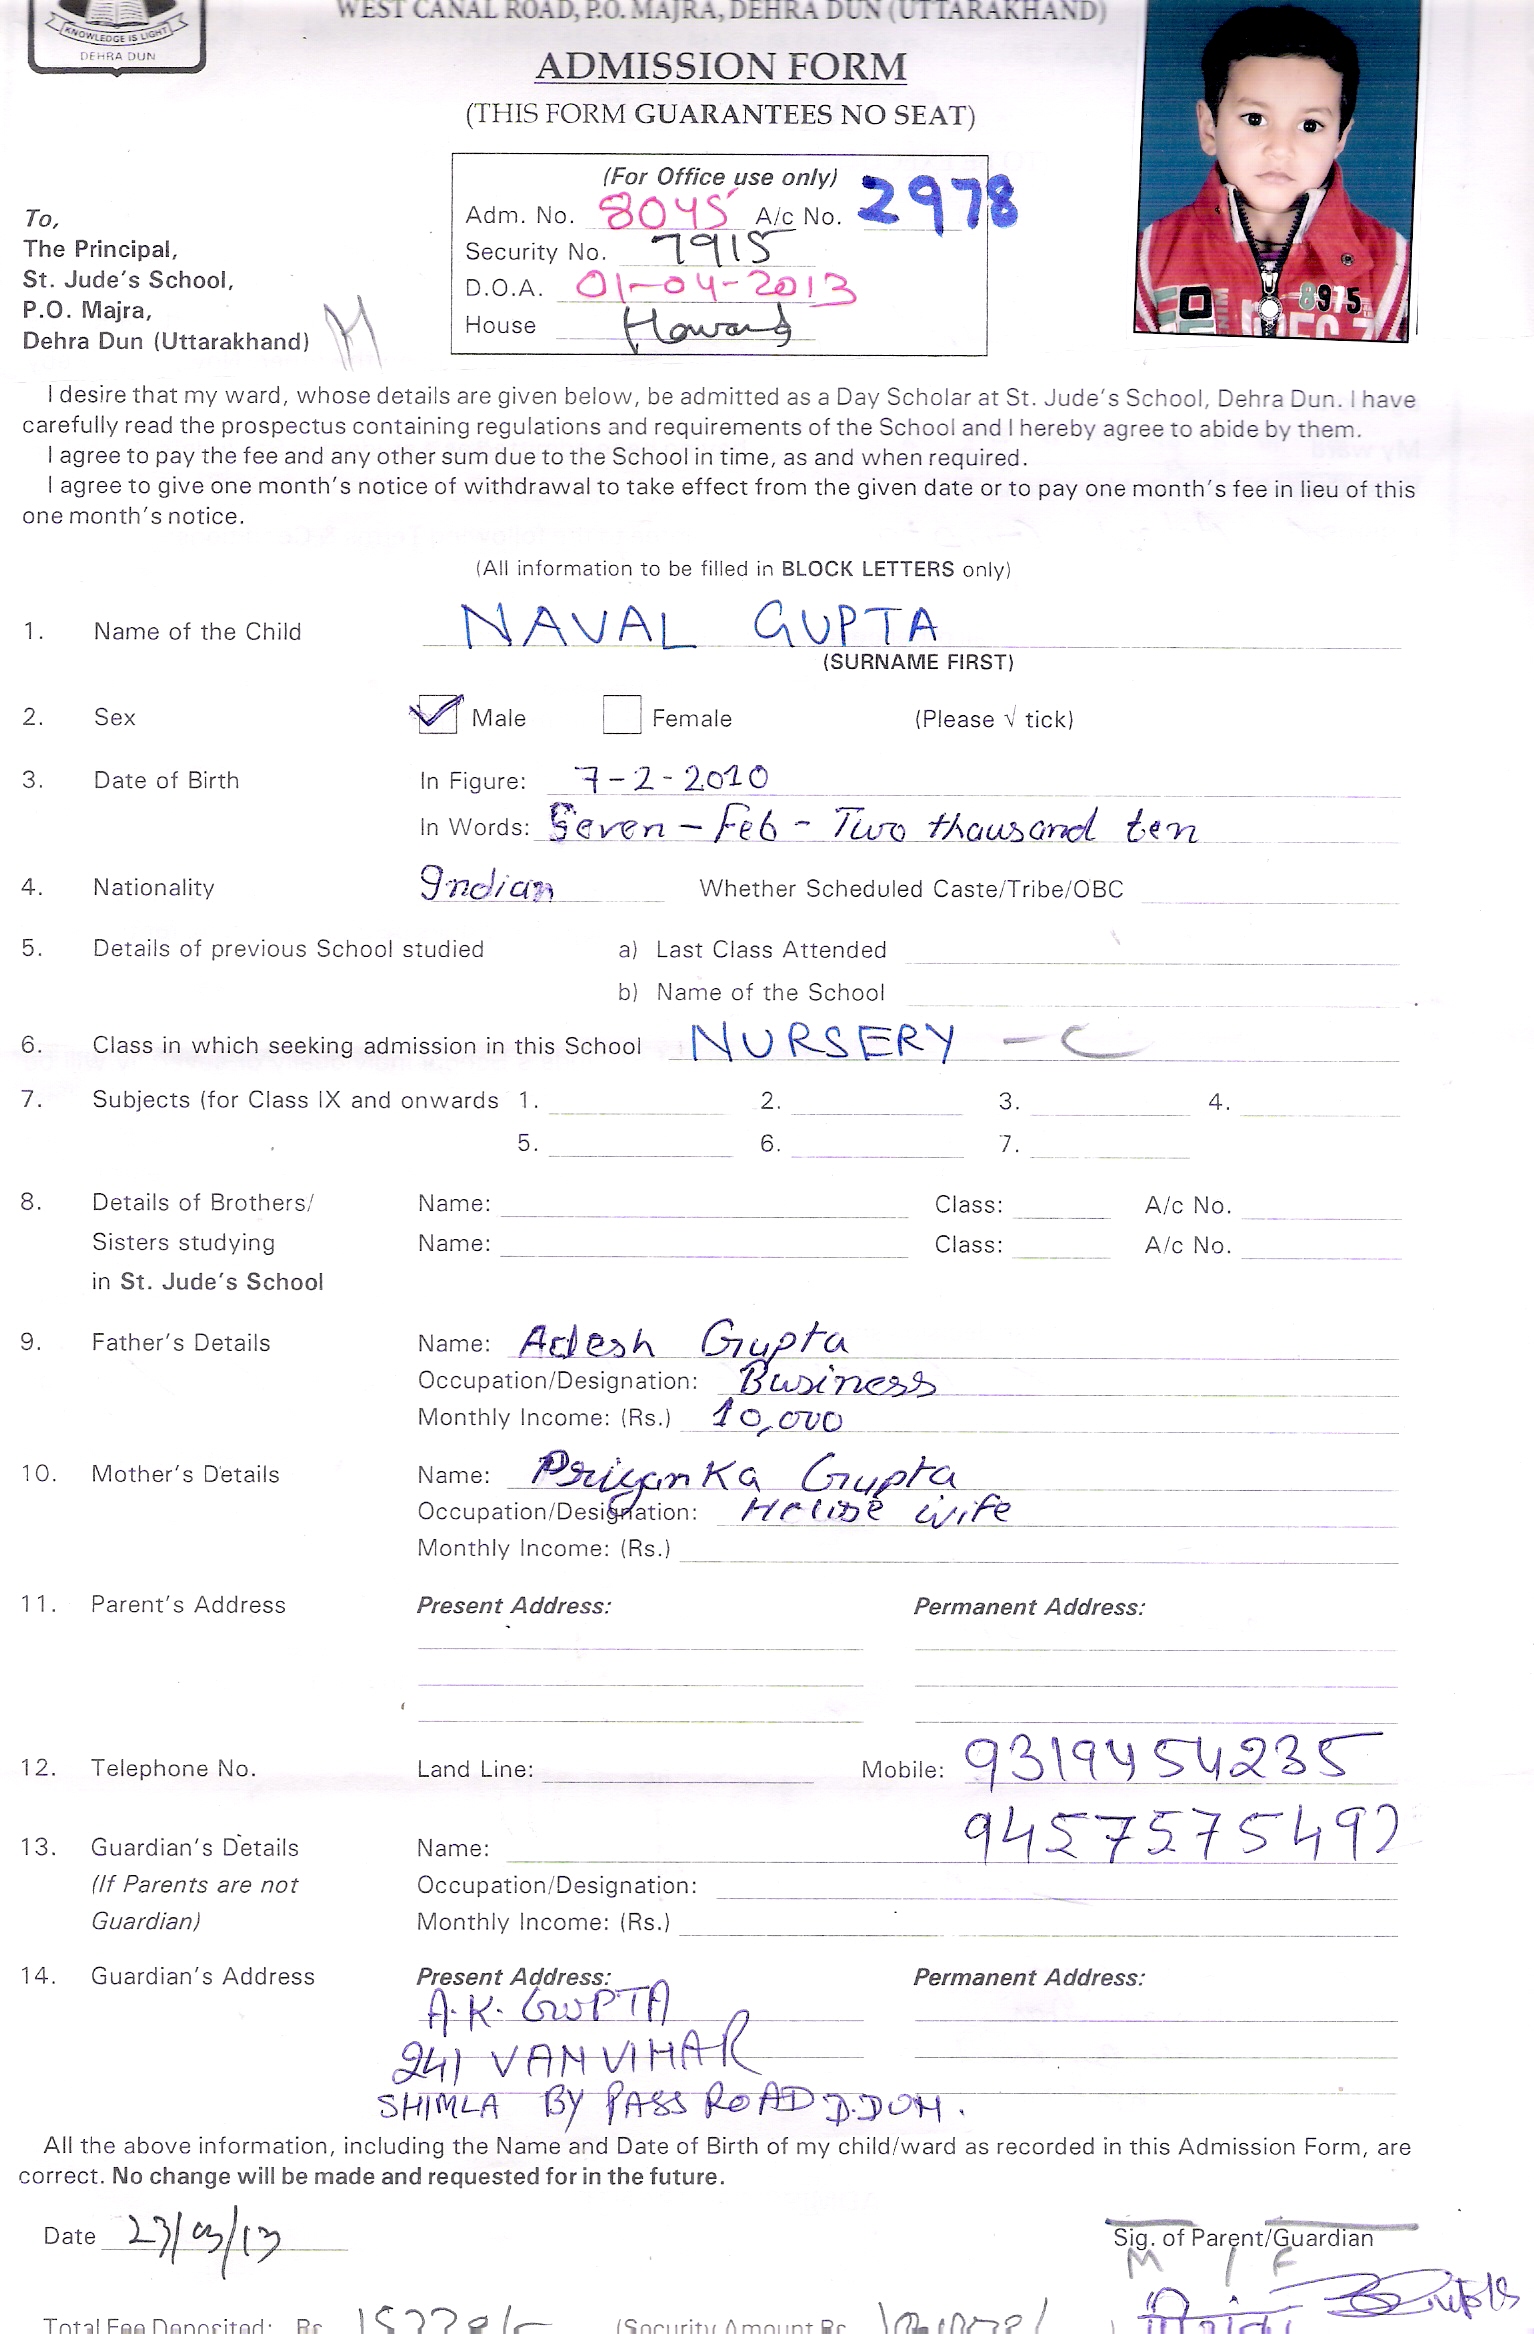 WEST CANAL ROAD, P.O. MAJRA, DEHRA DUN (UTTARAKHAND)
KNOWLEDGE IS LIGHT
DEHRA DUN
ADMISSION FORM
(THIS FORM GUARANTEES NO SEAT)
(For Office use only)
Adm. No. 8045 A/c No. 2978
Security No. 7915
D.O.A. 01-04-2013
House Howard
To,
The Principal,
St. Jude's School,
P.O. Majra,
Dehra Dun (Uttarakhand)
8975
I desire that my ward, whose details are given below, be admitted as a Day Scholar at St. Jude's School, Dehra Dun. I have
carefully read the prospectus containing regulations and requirements of the School and I hereby agree to abide by them.
I agree to pay the fee and any other sum due to the School in time, as and when required.
I agree to give one month's notice of withdrawal to take effect from the given date or to pay one month's fee in lieu of this
one month's notice.
(All information to be filled in BLOCK LETTERS only)
1. Name of the Child NAVAL GUPTA
(SURNAME FIRST)
2. Sex Male Female (Please √ tick)
3. Date of Birth In Figure: 7-2-2010
In Words: Seven - Feb - Two thousand ten
4. Nationality Indian Whether Scheduled Caste/Tribe/OBC
5. Details of previous School studied a) Last Class Attended
b) Name of the School
6. Class in which seeking admission in this School NURSERY - C
7. Subjects (for Class IX and onwards 1. 2. 3. 4.
5. 6. 7.
8. Details of Brothers/ Name: Class: A/c No.
Sisters studying Name: Class: A/c No.
in St. Jude's School
9. Father's Details Name: Adesh Gupta
Occupation/Designation: Business
Monthly Income: (Rs.) 10,000
10. Mother's Details Name: Priyanka Gupta
Occupation/Designation: House wife
Monthly Income: (Rs.)
11. Parent's Address Present Address: Permanent Address:
12. Telephone No. Land Line: Mobile: 9319454235
9457575492
13. Guardian's Details Name:
(If Parents are not Occupation/Designation:
Guardian) Monthly Income: (Rs.)
14. Guardian's Address Present Address: Permanent Address:
A.K. GUPTA
241 VAN VIHAR
SHIMLA BY PASS ROAD D.DUN.
All the above information, including the Name and Date of Birth of my child/ward as recorded in this Admission Form, are
correct. No change will be made and requested for in the future.
Date 23/03/13
Sig. of Parent/Guardian
M / F
Total Fee Deposited: Rs (Security Amount Rs